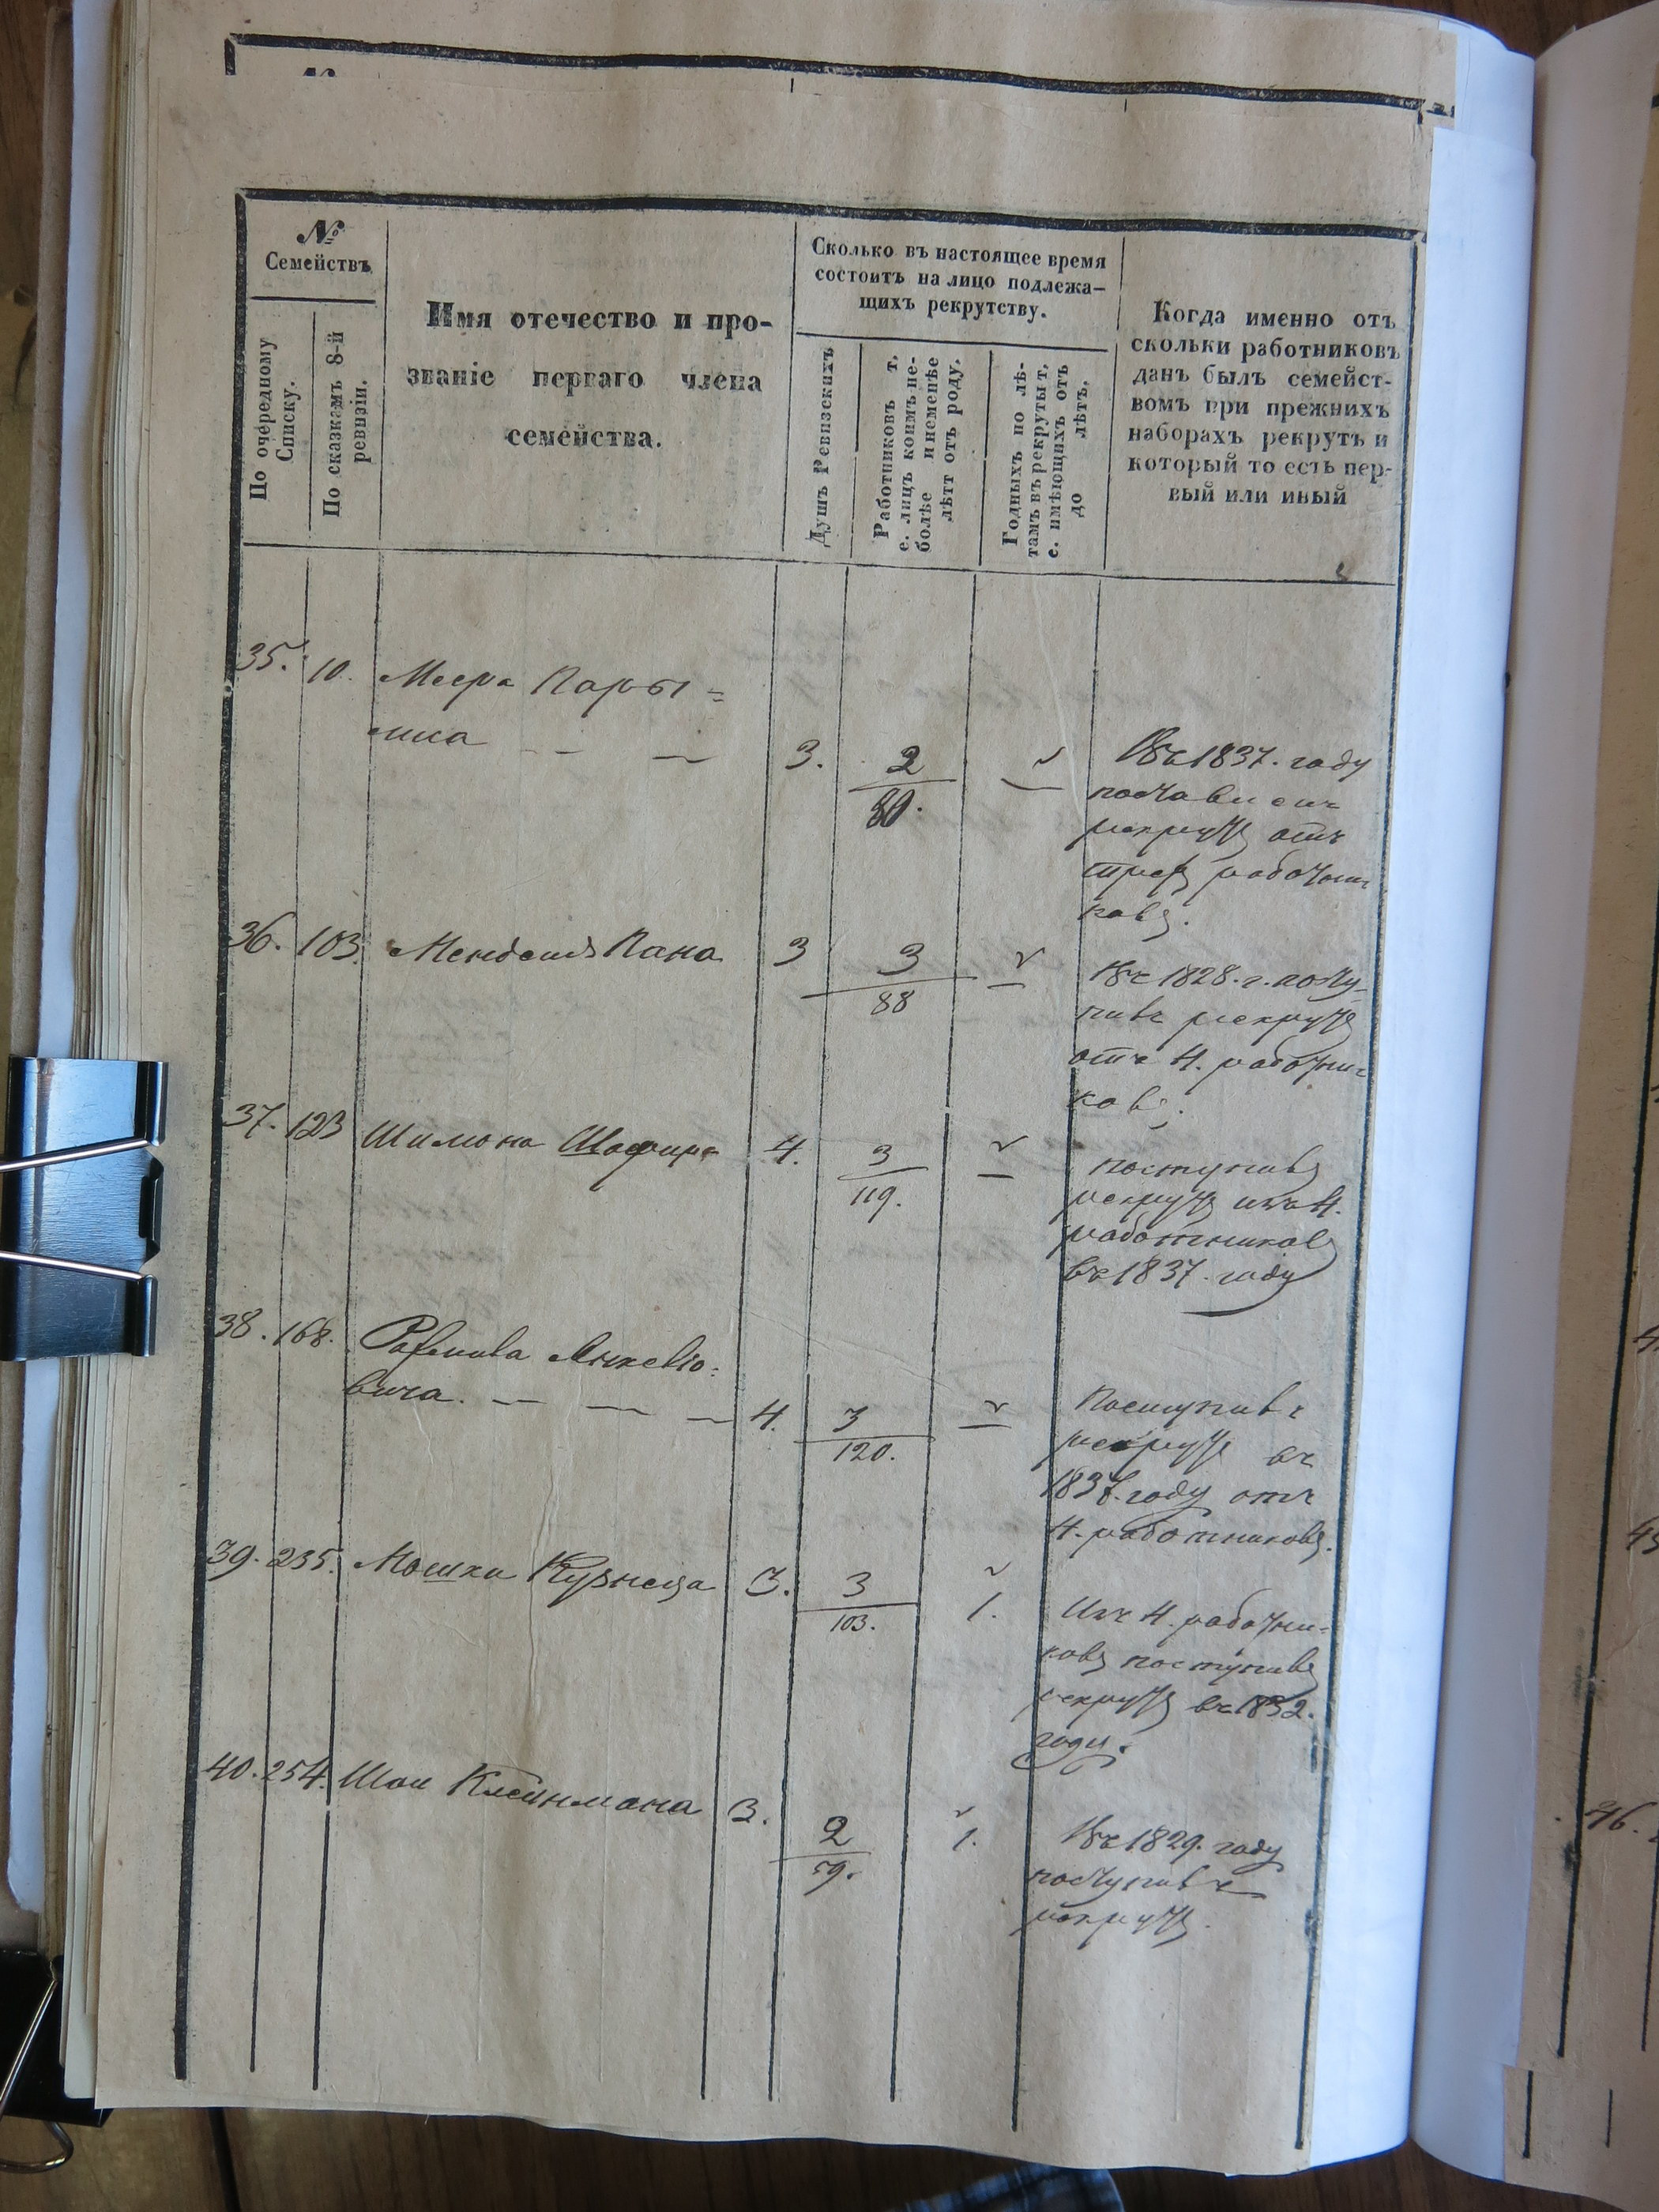 №
Семействъ
По очередному
Списку.
По сказкамъ 8-й
ревизіи.
Имя отечество и про-
званіе перваго члена
семейства.
Сколько въ настоящее время
состоитъ на лицо подлежа-
щихъ рекрутству.
Душъ Ревизскихъ
Работниковъ т.
е. лицъ коимъ не-
болѣе и неменѣе
лѣтт отъ роду.
Годныхъ по лѣ-
тамъ въ рекруты т.
е. имѣющихъ отъ
до лѣтъ.
Когда именно отъ
скольки работниковъ
данъ былъ семейст-
вомъ при прежнихъ
наборахъ рекрутъ и
который то есть пер-
вый или иный
35. 10. Меера
3. 2
80.
Въ 1837. году
рекрутъ отъ
трехъ работни-
ковъ.
36. 103. Менделя Пана 3 3
88
Въ 1828. г. посту-
пивъ рекрутъ
отъ 4. работни-
ковъ.
37. 123 Шимона Шафира 4. 3
119.
поступивъ
рекрутъ изъ 4.
работниковъ
въ 1837. году
38. 168.
вича. 4. 3
120.
Поступивъ
рекрутъ въ
1837. году отъ
4. работниковъ.
39. 235. Мошки Кузнеца 3. 3
103.
1.
Изъ 4. работни-
ковъ поступивъ
рекрутъ въ 1832.
году.
40. 254. Шаи Клейнмана 3. 2
59.
1.
Въ 1829. году
поступивъ
рекрутъ.